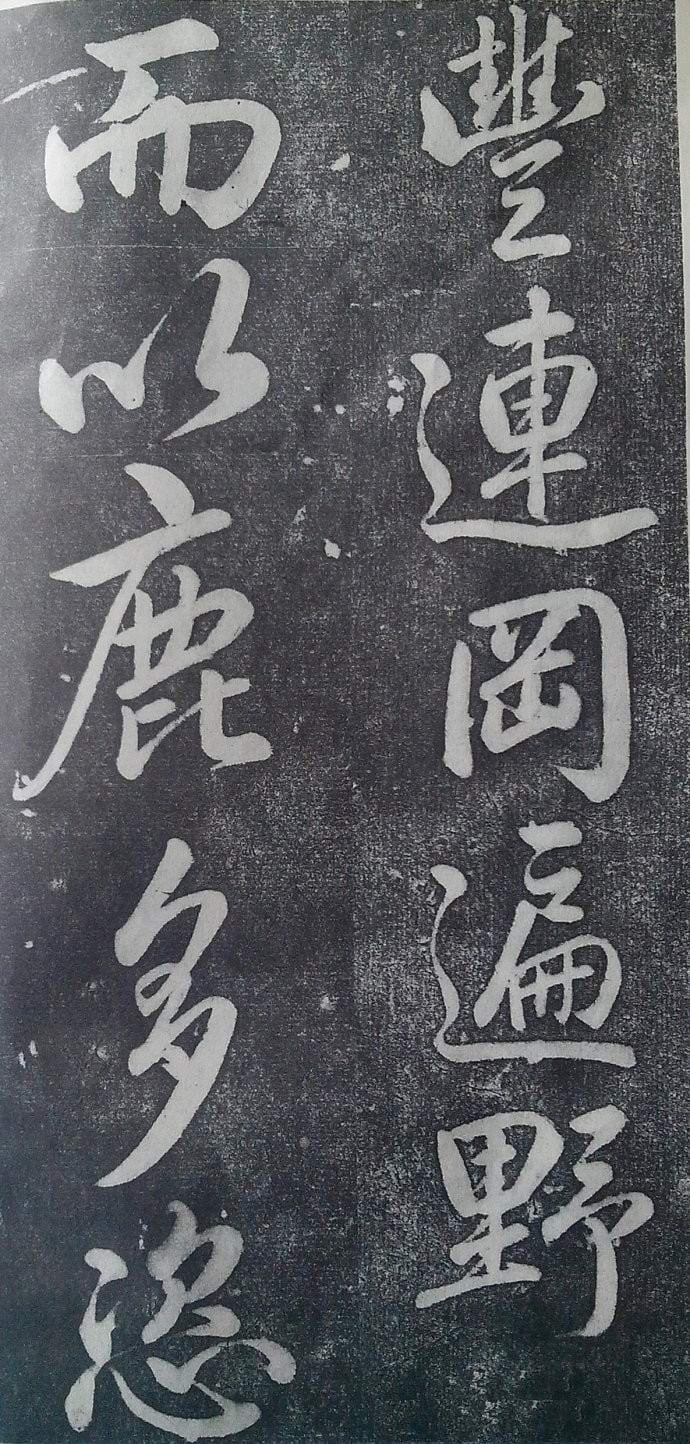 豐連岡遍野
而以鹿多恣